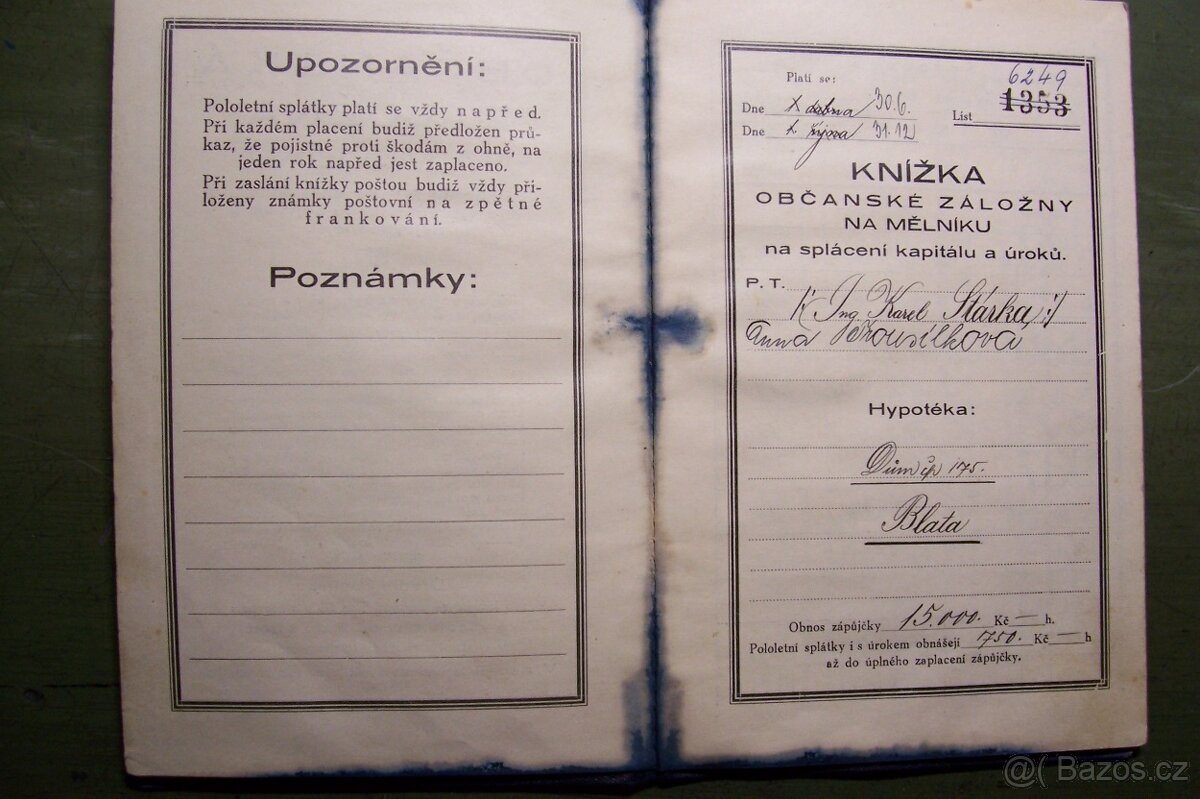 Upozornění:
Pololetní splátky platí se vždy napřed.
Při každém placení budiž předložen prů-
kaz, že pojistné proti škodám z ohně, na
jeden rok napřed jest zaplaceno.
Při zaslání knížky poštou budiž vždy při-
loženy známky poštovní na zpětné
frankování.
Poznámky:
Platí se:
Dne 30.6.
Dne 31.12
6249
List 1353
KNÍŽKA
OBČANSKÉ ZÁLOŽNY
NA MĚLNÍKU
na splácení kapitálu a úroků.
P. T.
Ing Karel Stárka
Anna
Hypotéka:
Dům čp 175.
Blata
Obnos zápůjčky 15.000. Kč — h.
Pololetní splátky i s úrokem obnášejí 750. Kč — h
až do úplného zaplacení zápůjčky.
@( Bazos.cz